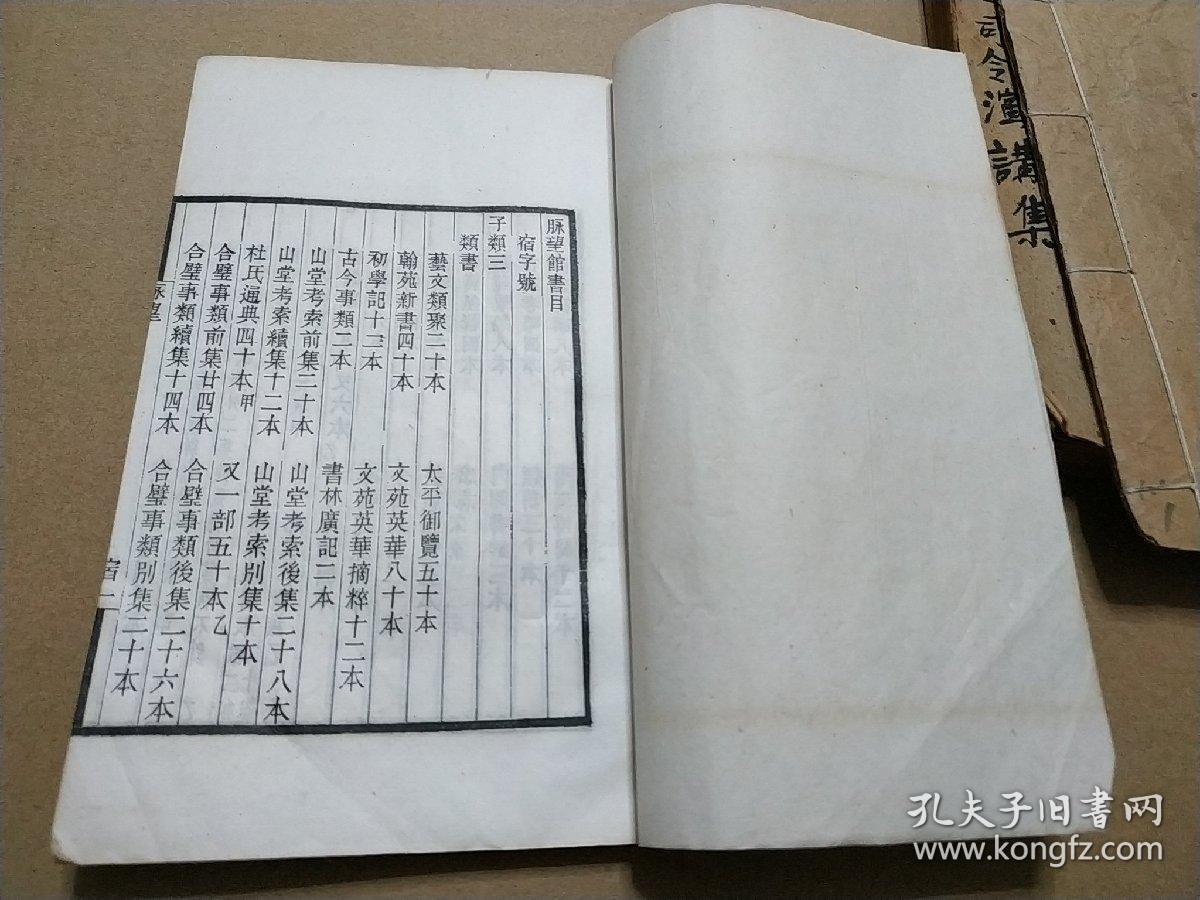 脉望館書目
宿字號
子類三
類書
藝文類聚二十本 太平御覽五十本
翰苑新書四十本 文苑英華八十本
初學記十二本 文苑英華摘粹十二本
古今事類二本 書林廣記二本
山堂考索前集二十本 山堂考索後集二十八本
山堂考索續集十二本 山堂考索別集十本
杜氏通典四十本甲 又一部五十本乙
合璧事類前集廿四本 合璧事類後集二十六本
合璧事類續集十四本 合璧事類別集二十本
司令演講集
孔夫子旧书网
www.kongfz.com